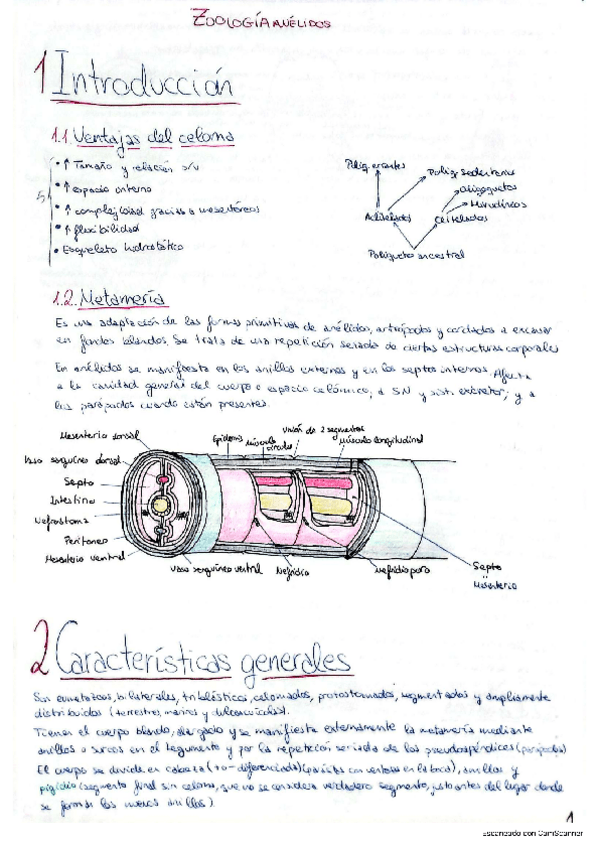 ZOOLOGÍA ANÉLIDOS
1 Introducción
1.1. Ventajas del celoma
• ↑ Tamaño y relación s/v
• ↑ espacio interno
• ↑ complejidad gracias a mesenterios
• ↑ flexibilidad
• Esqueleto hidrostático
Poliq. errantes
Poliq. sedentarios
oligoquetos
Hirudíneos
Aciculados
Clitelados
Poliqueto ancestral
1.2. Metamería
Es una adaptación de las formas primitivas de anélidos, artrópodos y cordados a excavar
en fondos blandos. Se trata de una repetición seriada de ciertas estructuras corporales
En anélidos se manifiesta en los anillos externos y en los septos internos. Afecta
a la cavidad general del cuerpo o espacio celómico, a SN y sist. excretor; y a
los parápodos cuando están presentes.
Mesenterio dorsal
Vaso sanguíneo dorsal
Septo
Intestino
Nefrostoma
Peritoneo
Mesenterio ventral
Epidermis
Músculo circular
Unión de 2 segmentos
Músculo longitudinal
Vaso sanguíneo ventral
Nefridio
Nefridioporo
Septo
Mesenterio
2 Características generales
Son eumetazoos, bilaterales, triblásticos, celomados, protostomados, segmentados y ampliamente
distribuidos (terrestres, marinos y dulceacuícolas).
Tienen el cuerpo blando, alargado y se manifiesta externamente la metamería mediante
anillos o surcos en el tegumento y por la repetición seriada de los pseudoapéndices (parápodos)
El cuerpo se divide en cabeza (+ o - diferenciada) (parásitos con ventosas en la boca), anillos y
pigidio (segmento final sin celoma, que no se considera verdadero segmento, justo antes del lugar donde
se forman los nuevos anillos).
1
Escaneado con CamScanner